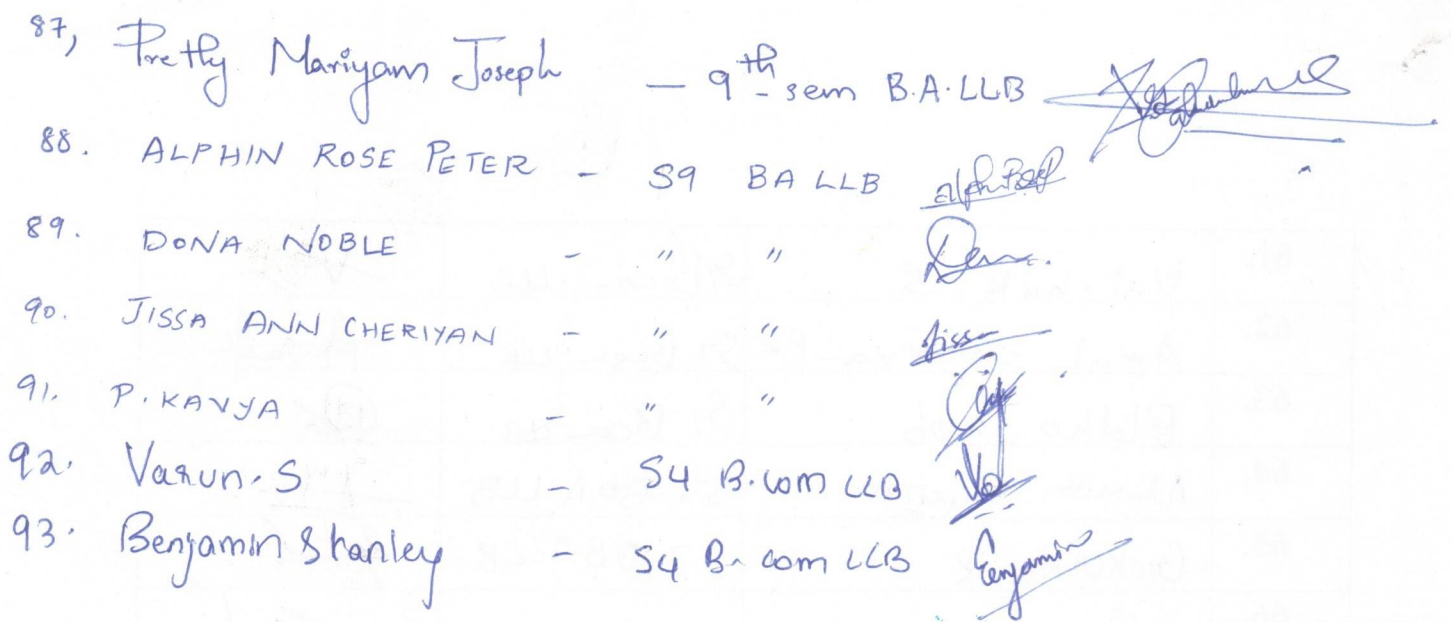 87, Pretty Mariyam Joseph — 9th sem B.A.LLB
88. ALPHIN ROSE PETER - S9 BA LLB
89. DONA NOBLE - " "
90. JISSA ANN CHERIYAN - " " Jissa
91. P. KAVYA - " "
92. Varun.S - S4 B.com LLB
93. Benjamin Shanley - S4 B.com LLB Benjamin